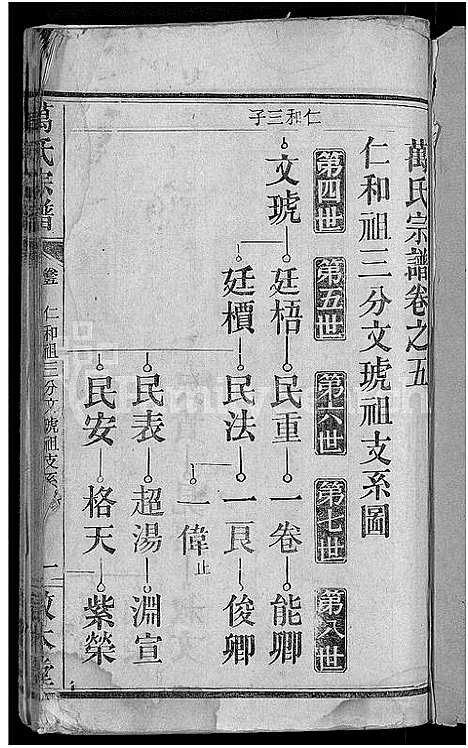 萬氏宗譜卷之五
仁和祖三分文琥祖支系圖
第四世 第五世 第六世 第七世 第八世
仁和三子
文琥 廷梧 民重 一卷 能卿
廷檟 民法 一良 俊卿
一偉 止
民表 超湯 淵宣
民安 格天 紫榮
萬氏宗譜 仁和祖三分文琥祖支系 一 敦本堂